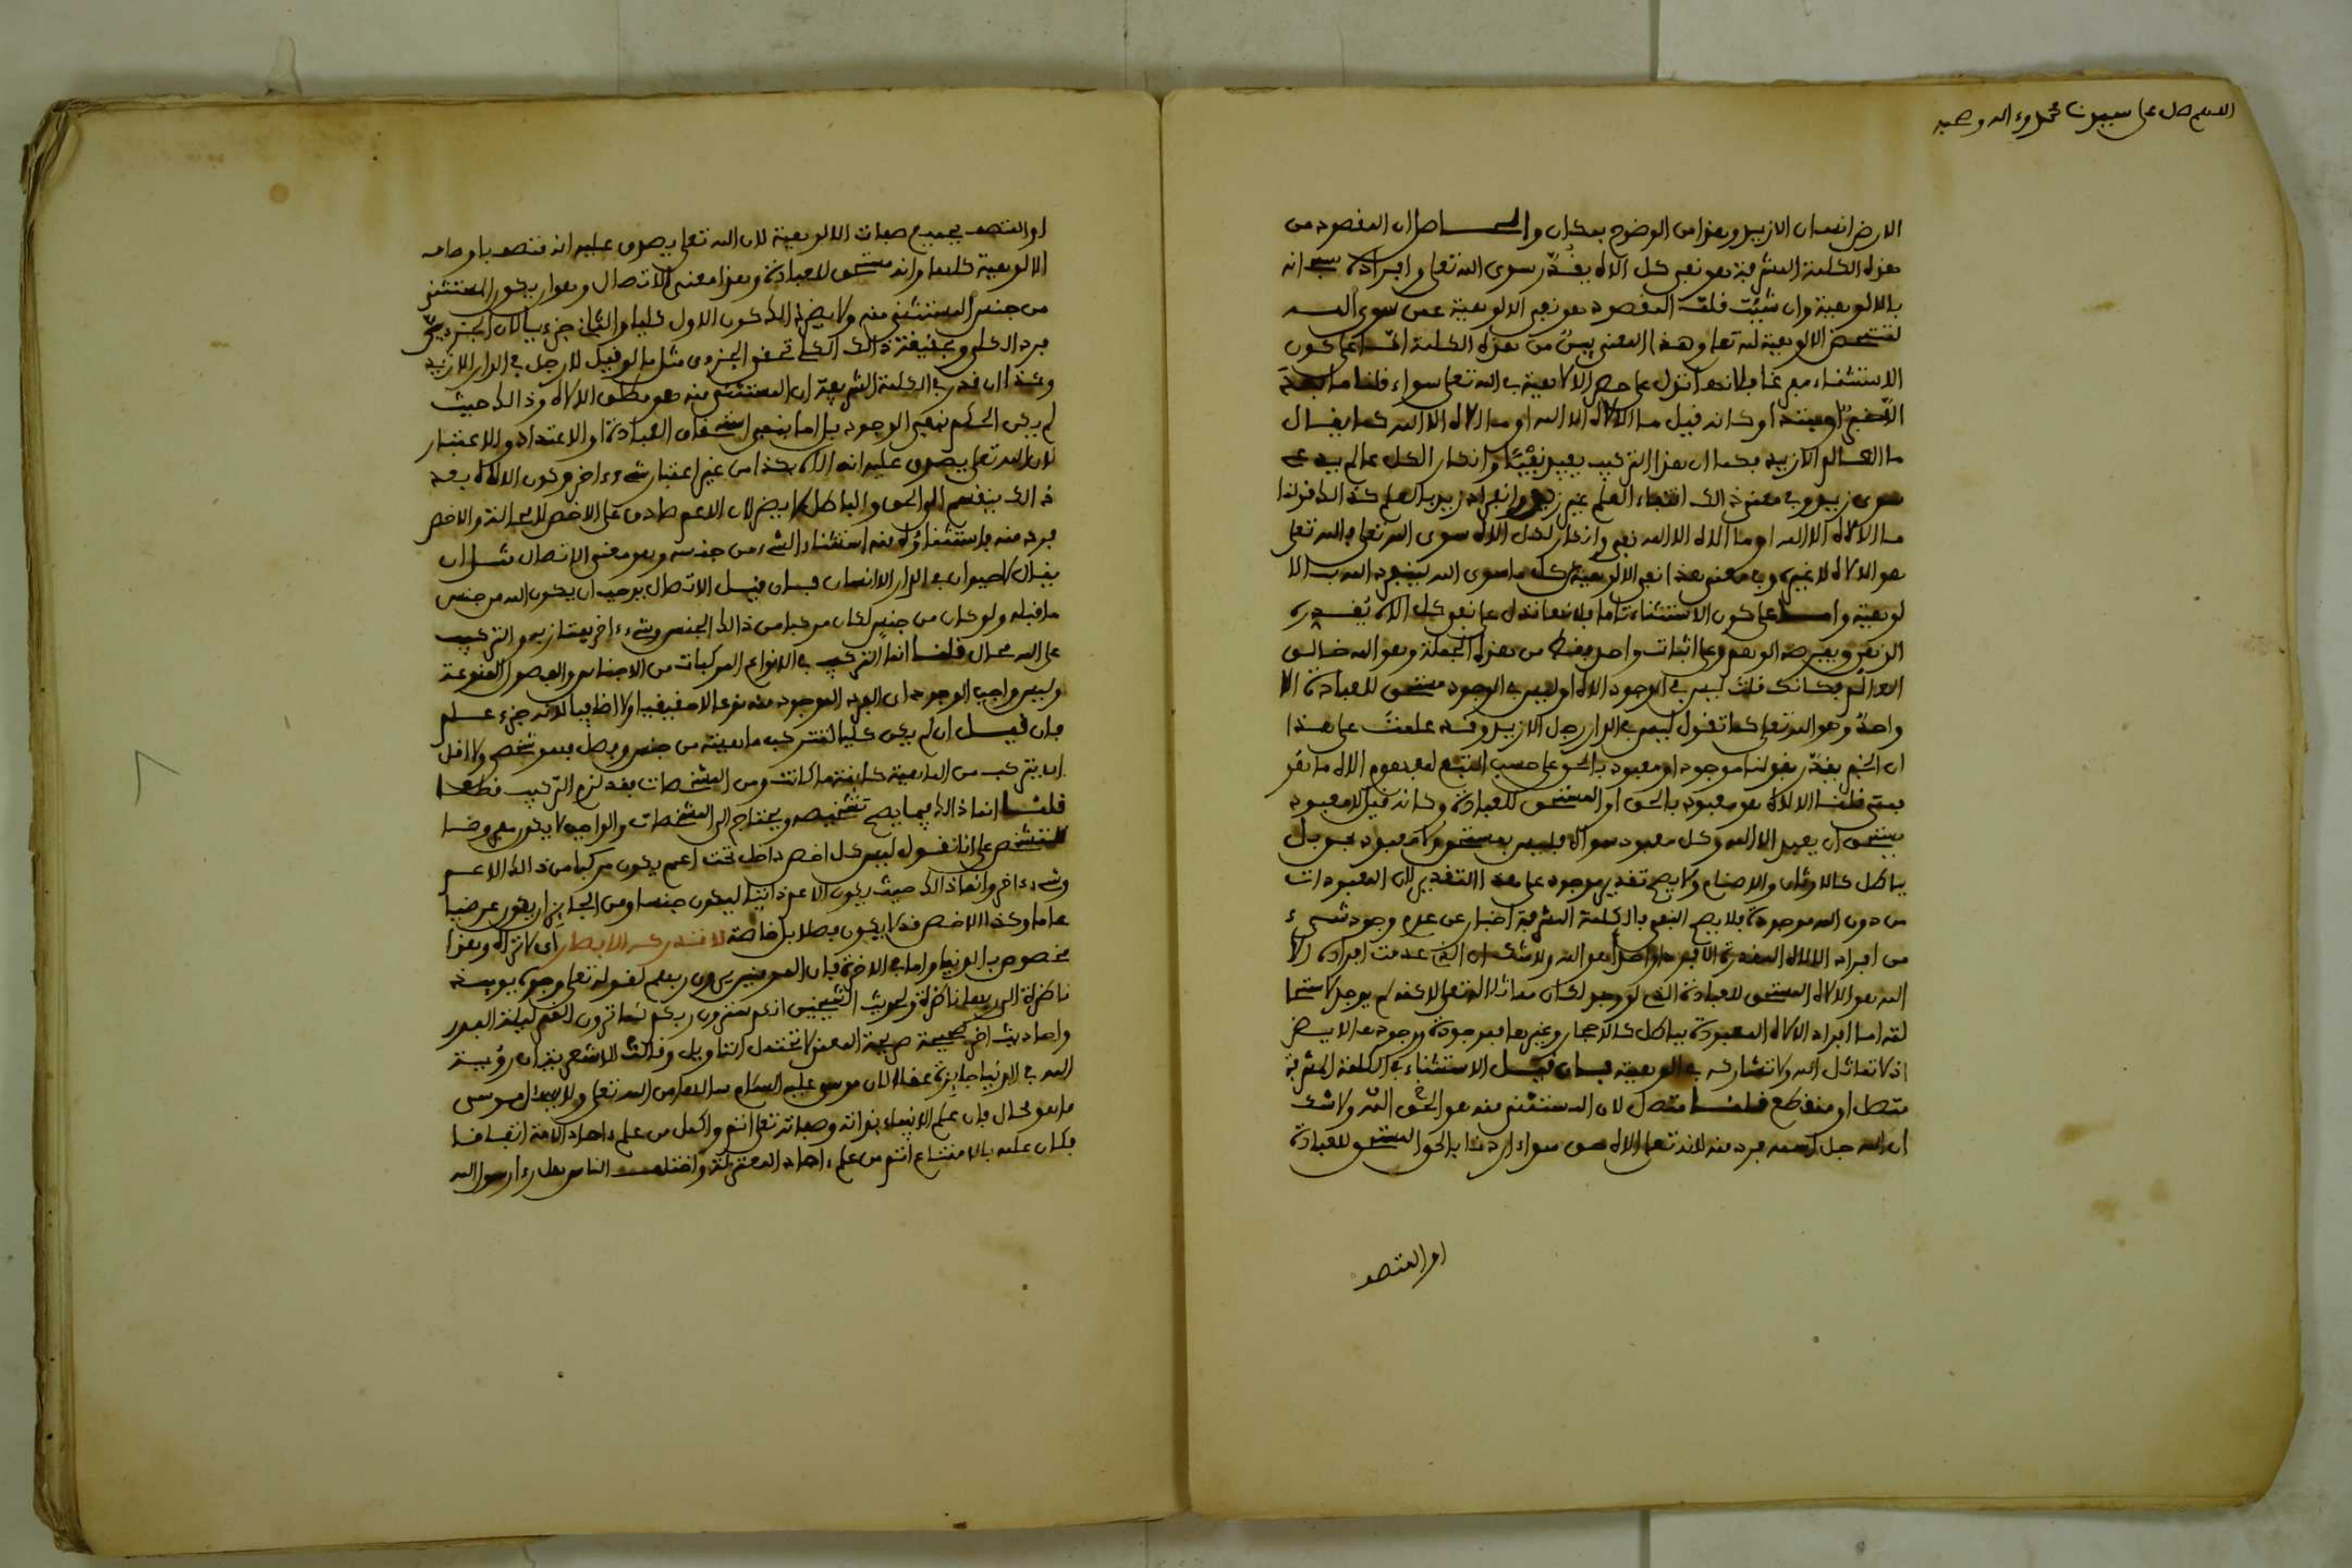 اللهم صل على سيدنا محمد وءاله وصحبه
الارض انسان الا زيد وهذا من الوضوح بمكان والحاصل ان المقصود من
هذه الكلمة المشرفة هو نفي كل الاه يقدر سوى الله تعلى وافراده سبحانه
بالالوهية وان شئت قلت المقصود هو نفي الالوهية عمن سوى الله
لتتمحض الالوهية لله تعلى وهذا المعنى بين من هذه الكلمة اما على كون
الاستثناء مفرغا فلانها تدل على حصر الالاهية في الله تعلى سواء قلنا ما بعد
الا خبر او مبتدا وكانه قيل ما الالاه الا الله او ما الاه الا الله كما يقال
ما العالم الا زيد فكما ان هذا التركيب يفيد نفيا وانكار الكل عالم يدعى
سوى زيد وفي معنى ذالك انتفاء العلم عن غير زيد وانفراد زيد بالعلم كذالك قولنا
ما الالاه الا الله او ما الاه الا الله نفي وانكار لكل الاه سوى الله تعلى فالله تعلى
هو الالاه لا غيره وفي معنى هذا نفي الالوهية عن كل ما سوى الله لينفرد الله بالا
لوهية واما على كون الاستثناء تاما فلانها تدل على نفي كل الاه يقدره
الذهن ويفرضه الوهم وعلى اثبات واحد فقط من هذه الجملة وهو الله خالق
العالم فكانك قلت ليس في الوجود الاه او ليس في الوجود مستحق للعبادة الا
واحد وهو الله تعلى كما تقول ليس في الدار رجل الا زيد وقد علمت على هذا
ان الخبر يقدر بقولنا موجود او معبود بالحق على حسب التتبع لمفهوم الاه ما هو
فمتى قلنا الالاه هو معبود بالحق او المستحق للعبادة وكانه قيل لا معبود
يستحق ان يعبد الا الله وكل معبود سواه فليس بمستحق ولا معبود بحق بل
بباطل كالاوثان والاصنام ولا يصح تقدير موجود على هذا التقدير لان المعبودات
من دون الله موجودة فلا يصح النفي فالكلمة المشرفة اخبار عن عدم وجود شيء
من افراد الالاه المقدرة الا فردا واحدا هو الله ولا شك ان الذي عدمت افراده الا
الله هو الالاه المستحق للعبادة الذي لو وجد لكان مماثلا لله تعلى لاكنه لم يوجد لاستحا
لته اما افراد الالاه المعبودة بباطل كالاحجار وغيرها فموجودة ووجودها لا يضر
اذ لا تماثل الله ولا تشاركه في الوهيته فان قيل الاستثناء في الكلمة المشرفة
متصل او منقطع قلنا متصل لان المستثنى منه هو الحق ولا شك
ان الله جل اسمه فرد منه لانه تعلى الاه حق سواء اردنا بالحق المستحق للعبادة
او المتصف
او المتصف بجميع صفات الالوهية لان الله تعلى يصدق عليه انه متصف باوصاف
الالوهية كلها وانه مستحق للعبادة وهذا معنى الاتصال وهو ان يكون المستثنى
من جنس المستثنى منه ولا يضر في ذالك كون الاول كليا والثاني جزءيا لان الجزءي
فرد الكلي وحقيقة ذالك الكلي تحقق الجزءي مثل ما لو قيل لا رجل في الدار الا زيد
وكذا ان قدر في الكلمة الشريفة ان المستثنى منه هو مطلق الالاه وذالك حيث
لم يكن الحكم بنفي الوجود بل اما بنفي استحقاق العبادة او الاعتداد والاعتبار
لان الله تعلى يصدق عليه انه الاه هكذا من غير اعتبار شيء ءاخر وكون الالاه بعد
ذالك ينقسم الى الحق والباطل لا يضر لان الاعم صادق على الاخص لا محالة والاخص
فرد منه فاستثناؤه منه استثناء الشيء من جنسه وهو معنى الاتصال مثل ان
يقال لا حيوان في الدار الا انسان فان قيل الاتصال يوجب ان يكون الله من جنس
ما قبله ولو كان من جنس لكان مركبا من ذالك الجنس وشيء ءاخر يمتاز به والتركيب
على الله محال قلنا انما التركيب في الانواع المركبات من الاجناس والفصول المنوعة
وليس واجب الوجود اي الفرد الموجود منه نوعا لا حقيقيا ولا اضافيا لانه جزء علم
فان قيل ان لم يكن كليا لتتركب ماهيته من جنس وفصل فهو شخص ولا اقل
ان يتركب من الماهية كائنة ما كانت ومن المشخصات فقد لزم التركيب قطعا
قلنا انما ذالك فيما يصح تشخيصه ويحتاج الى المشخصات والواجب لا يكون معروضا
للتشخص على انا نقول ليس كل اخص داخل تحت اعم يكون مركبا من ذالك الاعم
وشيء ءاخر وانما ذالك حيث يكون الاعم ذاتيا ليكون جنسا ومن الجائز ان يكون عرضيا
عاما وكذا الاخص قد لا يكون فصلا بل خاصة لا تدركه الابصار اي لا تراه وهذا
مخصوص بالدنيا واما في الاخرة فان المومنين يرون ربهم لقوله تعلى وجوه يومئذ
ناضرة الى ربها ناظرة ولحديث الشيخين انكم سترون ربكم كما ترون القمر ليلة البدر
واحاديث اخر صحيحة صريحة المعنى لا تحتمل التاويل وقالت الاشعرية ان رؤية
الله في الدنيا جايزة عقلا لان موسى عليه السلام سالها من الله تعلى ولا يسئل موسى
ما هو محال فان علم الانبياء بذاته وصفاته تعلى اتم واكمل من علم ءاحاد الامة اتفاقا
فكان علمه بالامتناع اتم من علم ءاحاد المعتزلة واختلف الناس هل رءا رسول الله